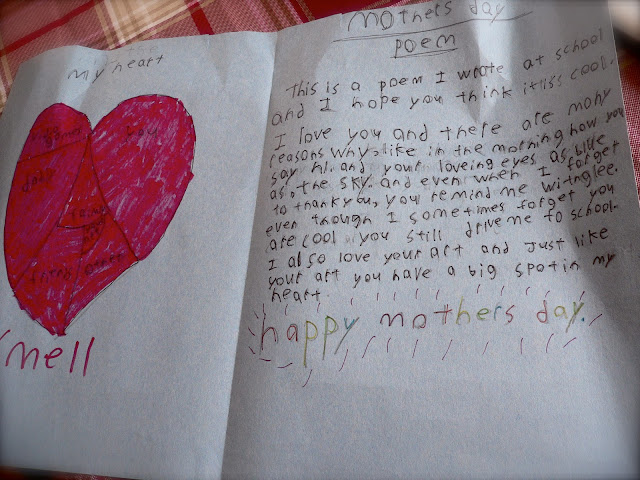 my heart
video games
you
daddy
friend
other
mell
mothers day
poem
This is a poem I wrote at school
and I hope you think it iss cool.
I love you and there are many
reasons why, like in the morning how you
say hi. and your loveing eyes as blue
as, the sky. and even when I forget
to thank you, you remind me witnglee.
even though I sometimes forget you
are cool you still drive me to school.
I also love your art and just like
your art you have a big spot in my
heart.
happy mothers day.